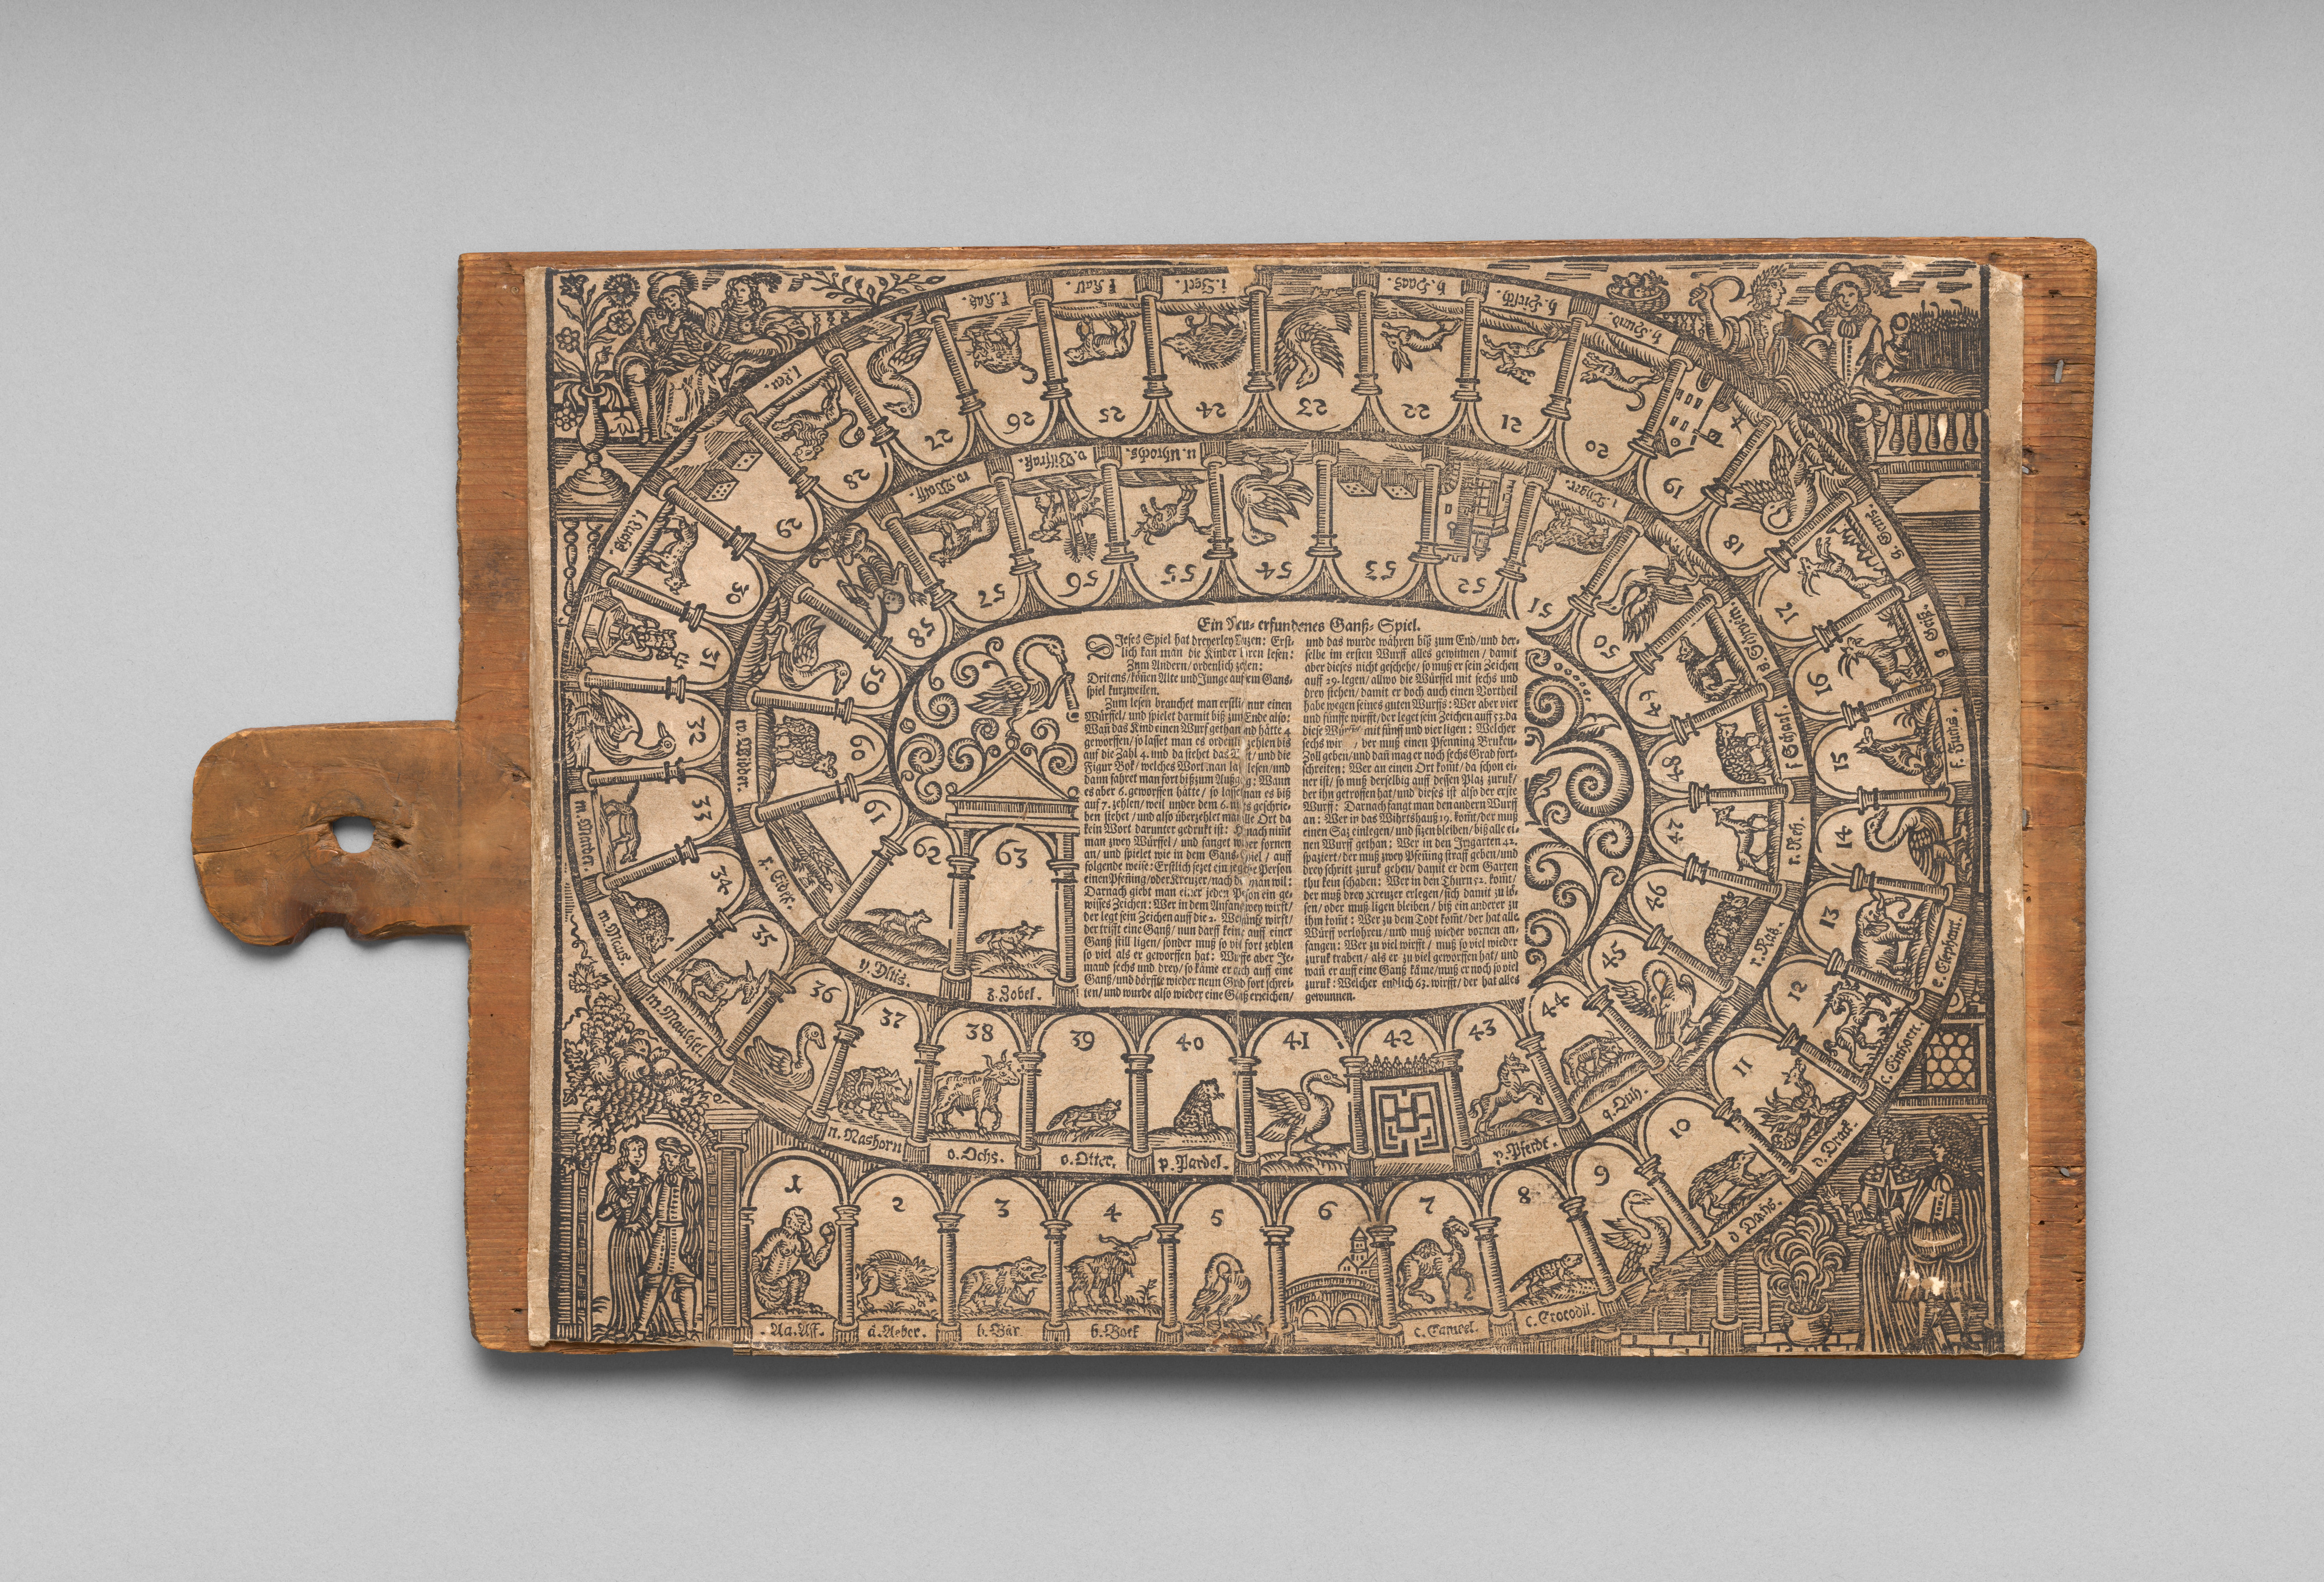 Ein Neu-erfundenes Ganß-Spiel.
Dieses Spiel hat dreyerley Nuzen: Erst-
lich kan man die Kinder lesen:
Zum Andern / ordentlich zelen:
Dritens / können Alte und Junge auf dem Gans-
spiel kurzweilen.
Zum lesen brauchet man erstlich nur einen
Würffel / und spielet darmit biß zum Ende also:
Wan das Kind einen Wurf gethan und hätte 4
geworffen / so lasset man es ordentlich zehlen bis
auf die Zahl 4. und da stehet das und die
Figur Bok / welches Wort man lasset lesen / und
dann fahret man fort biß zum Außgang: Wann
es aber 6. geworffen hätte / so lasset man es biß
auf 7. zehlen / weil under dem 6. nichts geschrie-
ben stehet / und also überzehlet man alle Ort da
kein Wort darunter gedrukt ist: Hernach nimt
man zwey Würffel / und fanget wider fornen
an / und spielet wie in dem Gans-Spiel / auff
folgende weise: Erstlich sezet ein jegliche Person
einen Pfenning / oder Kreuzer / nach dem man wil:
Darnach giebt man einer jeden Person ein ge-
wisses Zeichen: Wer in dem Anfang zwey wirft /
der legt sein Zeichen auff die 2. Wer fünff wirft /
der trifft eine Ganß / nun darff keine auff einer
Ganß still ligen / sonder muß so vil fort zehlen
so viel als er geworffen hat: Wurffe aber Je-
mand sechs und drey / so käme er auch auff eine
Ganß / und dörffte wieder neun Grad fort schrei-
ten / und wurde also wieder eine Ganß erreichen /
und das wurde währen biß zum End / und der-
selbe im ersten Wurff alles gewinnen / damit
aber dieses nicht geschehe / so muß er sein Zeichen
auff 29. legen / allwo die Würffel mit sechs und
drey stehen / damit er doch auch einen Vortheil
habe wegen seines guten Wurffs: Wer aber vier
und fünffe wirfft / der leget sein Zeichen auff 53. da
diese Würffel mit fünff und vier ligen: Welcher
sechs wirfft / der muß einen Pfenning Bruken-
Zoll geben / und dañ mag er noch sechs Grad fort-
schreiten: Wer an einen Ort komt / da schon ei-
ner ist / so muß derselbig auff dessen Plaz zuruk /
der ihn getroffen hat / und dieses ist also der erste
Wurff: Darnach fangt man den andern Wurff
an: Wer in das Wihrtshauß 19. komt / der muß
einen Saz einlegen / und sizen bleiben / biß alle ei-
nen Wurff gethan: Wer in den Irrgarten 42.
spaziert / der muß zwey Pfenning straff geben / und
drey schritt zuruk gehen / damit er dem Garten
thu kein schaden: Wer in den Thurn 52. komt /
der muß drey Kreuzer erlegen / sich damit zu lö-
sen / oder muß ligen bleiben / biß ein anderer zu
ihm komt: Wer zu dem Todt komt / der hat alle
Würff verlohren / und muß wieder vornen an-
fangen: Wer zu viel wirfft / muß so viel wieder
zuruk traben / als er zu viel geworffen hat / und
wañ er auff eine Ganß käme / muß er noch so viel
zuruk: Welcher endlich 63. wirfft / der hat alles
gewunnen.
1
Aa. Aff.
2
ä. Aeber.
3
b. Bär
4
b. Bock
5
6
7
c. Cameel.
8
c. Crocodil.
9
10
d. Dachs.
11
d. Drack.
12
e. Einhorn.
13
e. Elephant.
14
15
f. Fuchs.
16
g. Geiß.
17
g. Gems.
18
19
20
h. Hund.
21
h. Hirsch.
22
h. Haas.
23
24
i. Igel.
25
k. Kalb.
26
k. Kaz.
27
28
l. Leu.
29
30
l. Lux.
31
32
33
m. Minder.
34
m. Maus.
35
m. Mauleser.
36
37
n. Nashorn
38
o. Ochs.
39
o. Otter.
40
p. Pardel.
41
42
43
p. Pferdt.
44
q. Quh.
45
46
r. Raz.
47
r. Reh.
48
s. Schaaf.
49
s. Schwein.
50
51
t. Tyger.
52
53
54
55
u. Uhrochs.
56
v. Vilfraß.
57
w. Wolff.
58
59
60
w. Widder.
61
x. Eidex.
62
y. Yltis.
63
z. Zobel.